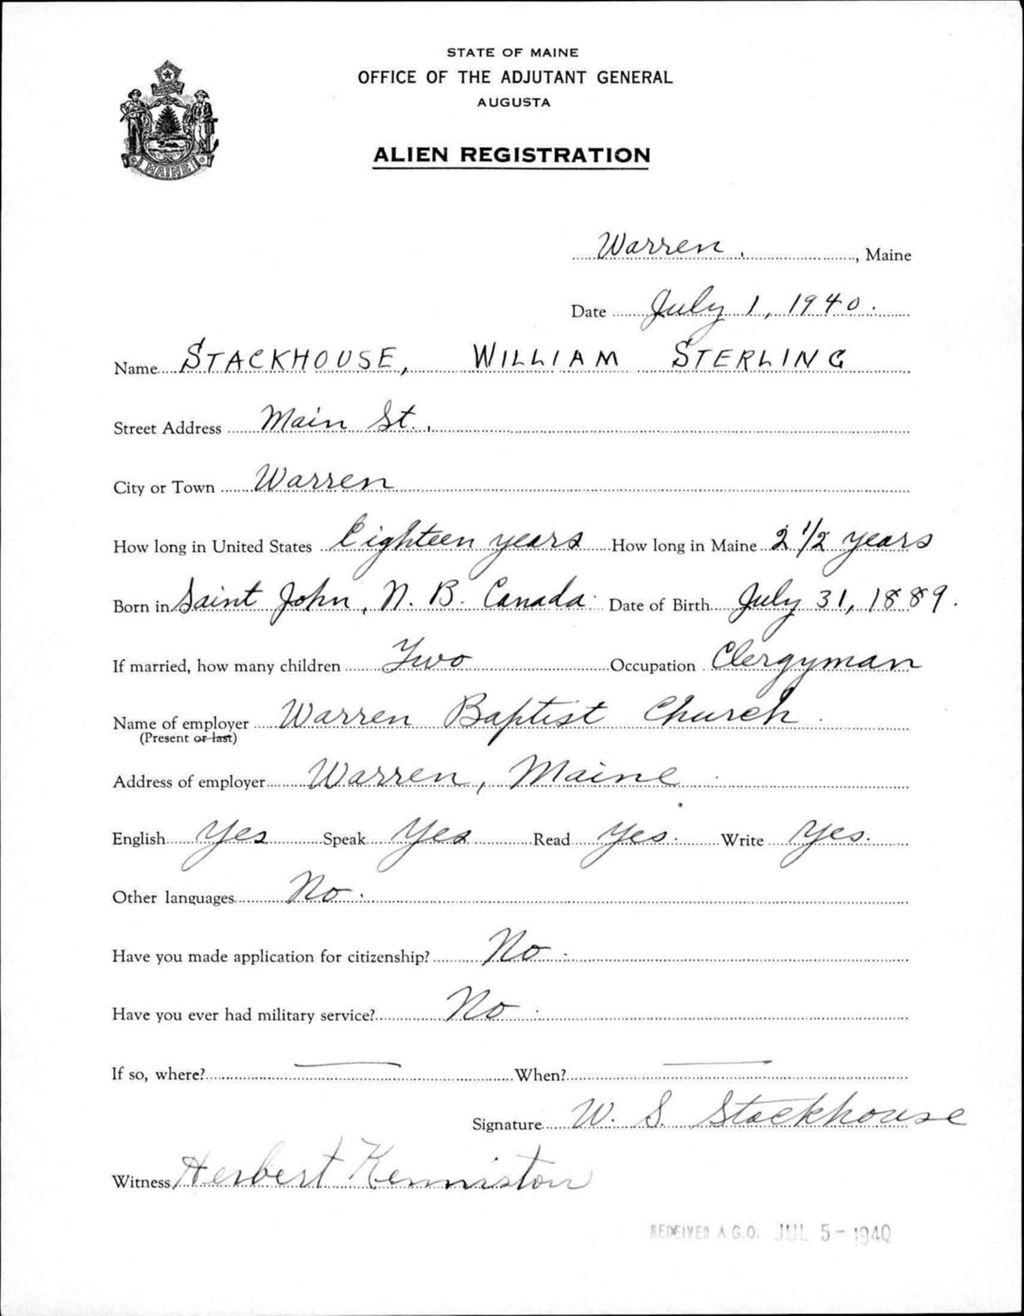 STATE OF MAINE
OFFICE OF THE ADJUTANT GENERAL
AUGUSTA
ALIEN REGISTRATION
MAINE
Warren, , Maine
Date July 1, 1940.
Name STACKHOUSE, WILLIAM STERLING
Street Address Main St.,
City or Town Warren
How long in United States Eighteen years How long in Maine 2 1/2 years
Born in Saint John, N. B. Canada. Date of Birth July 31, 1889.
If married, how many children Two Occupation Clergyman
Name of employer Warren Baptist Church.
(Present or last)
Address of employer Warren, Maine.
English Yes Speak Yes Read Yes. Write Yes.
Other languages No.
Have you made application for citizenship? No.
Have you ever had military service? No.
If so, where? — When? —
Signature W. S. Stackhouse
Witness Herbert Kenniston
RECEIVED A.G.O. JUL 5 - 1940